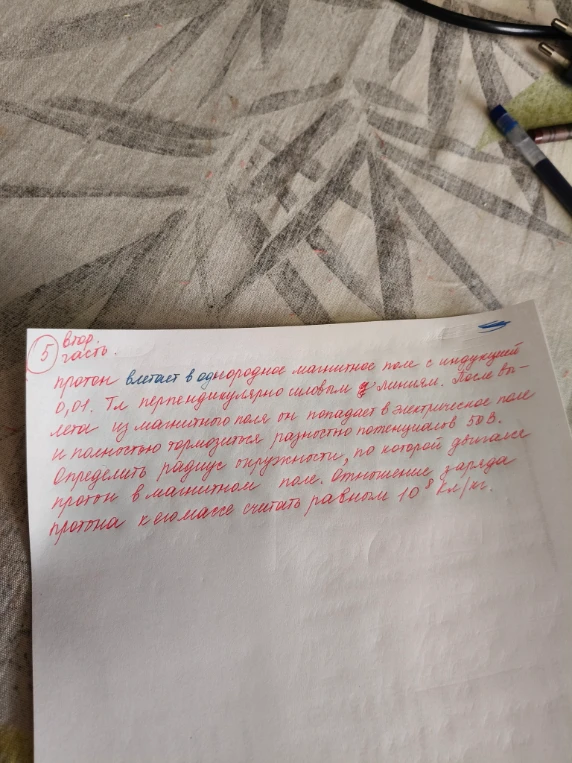 5 втор. часть.
протон влетает в однородное магнитное поле с индукцией
0,01. Тл перпендикулярно силовым линиям. После вы-
лета из магнитного поля он попадает в электрическое поле
и полностью тормозиться разностью потенциалов 50 В.
Определить радиус окружности, по которой двигался
протон в магнитном поле. Отношение заряда
протона к его массе считать равным 10⁸ Кл/кг.